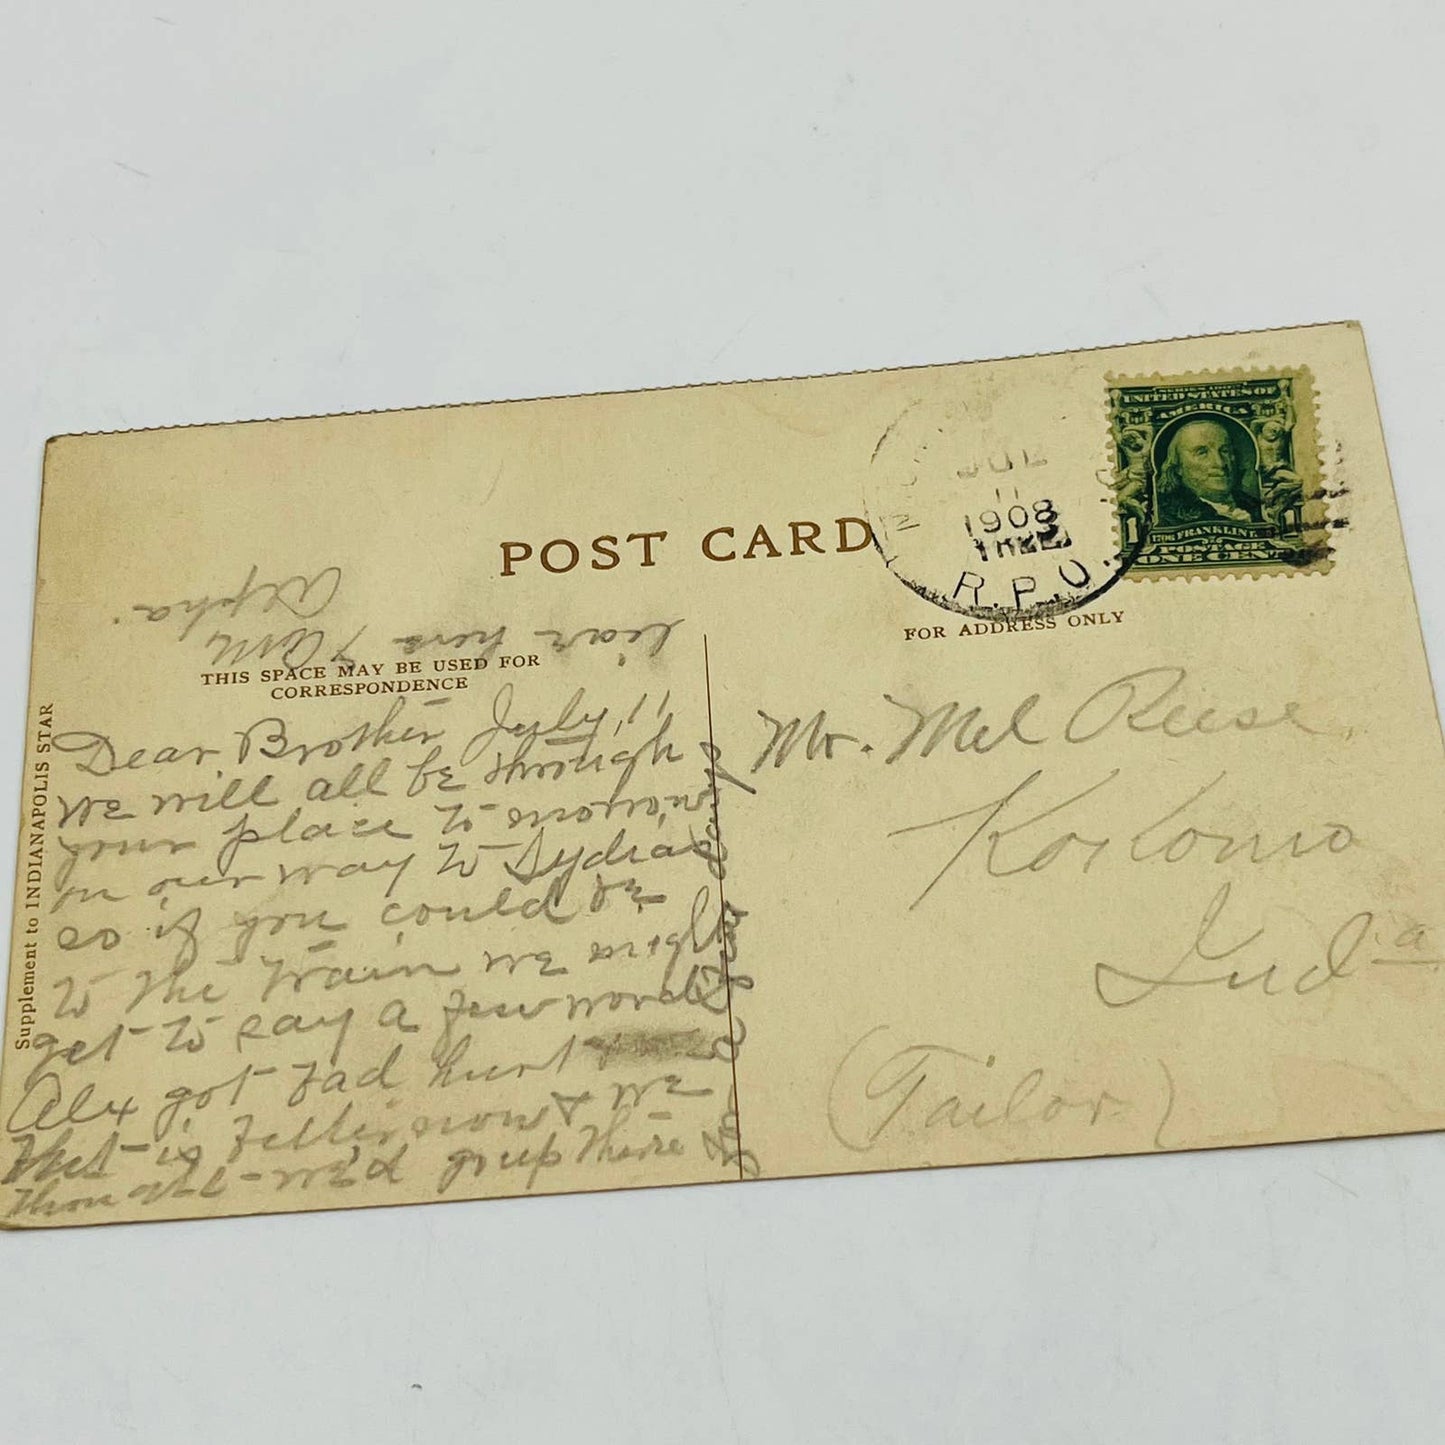 POST CARD
THIS SPACE MAY BE USED FOR
CORRESPONDENCE
FOR ADDRESS ONLY
Supplement to INDIANAPOLIS STAR
JUL
11
1908
R.P.O.
UNITED STATES OF
AMERICA
FRANKLIN
POSTAGE
ONE CENT
Dear Brother July, 11
we will all be through
your place
on our way to Lydias
so if you could be
to the train we might
get to say a few words
Alex got bad hurt
that is
we'd go up there &
lear here 7 am
Alpha
Mr. Mel Reese
Kokomo
Ind a
(Tailor)